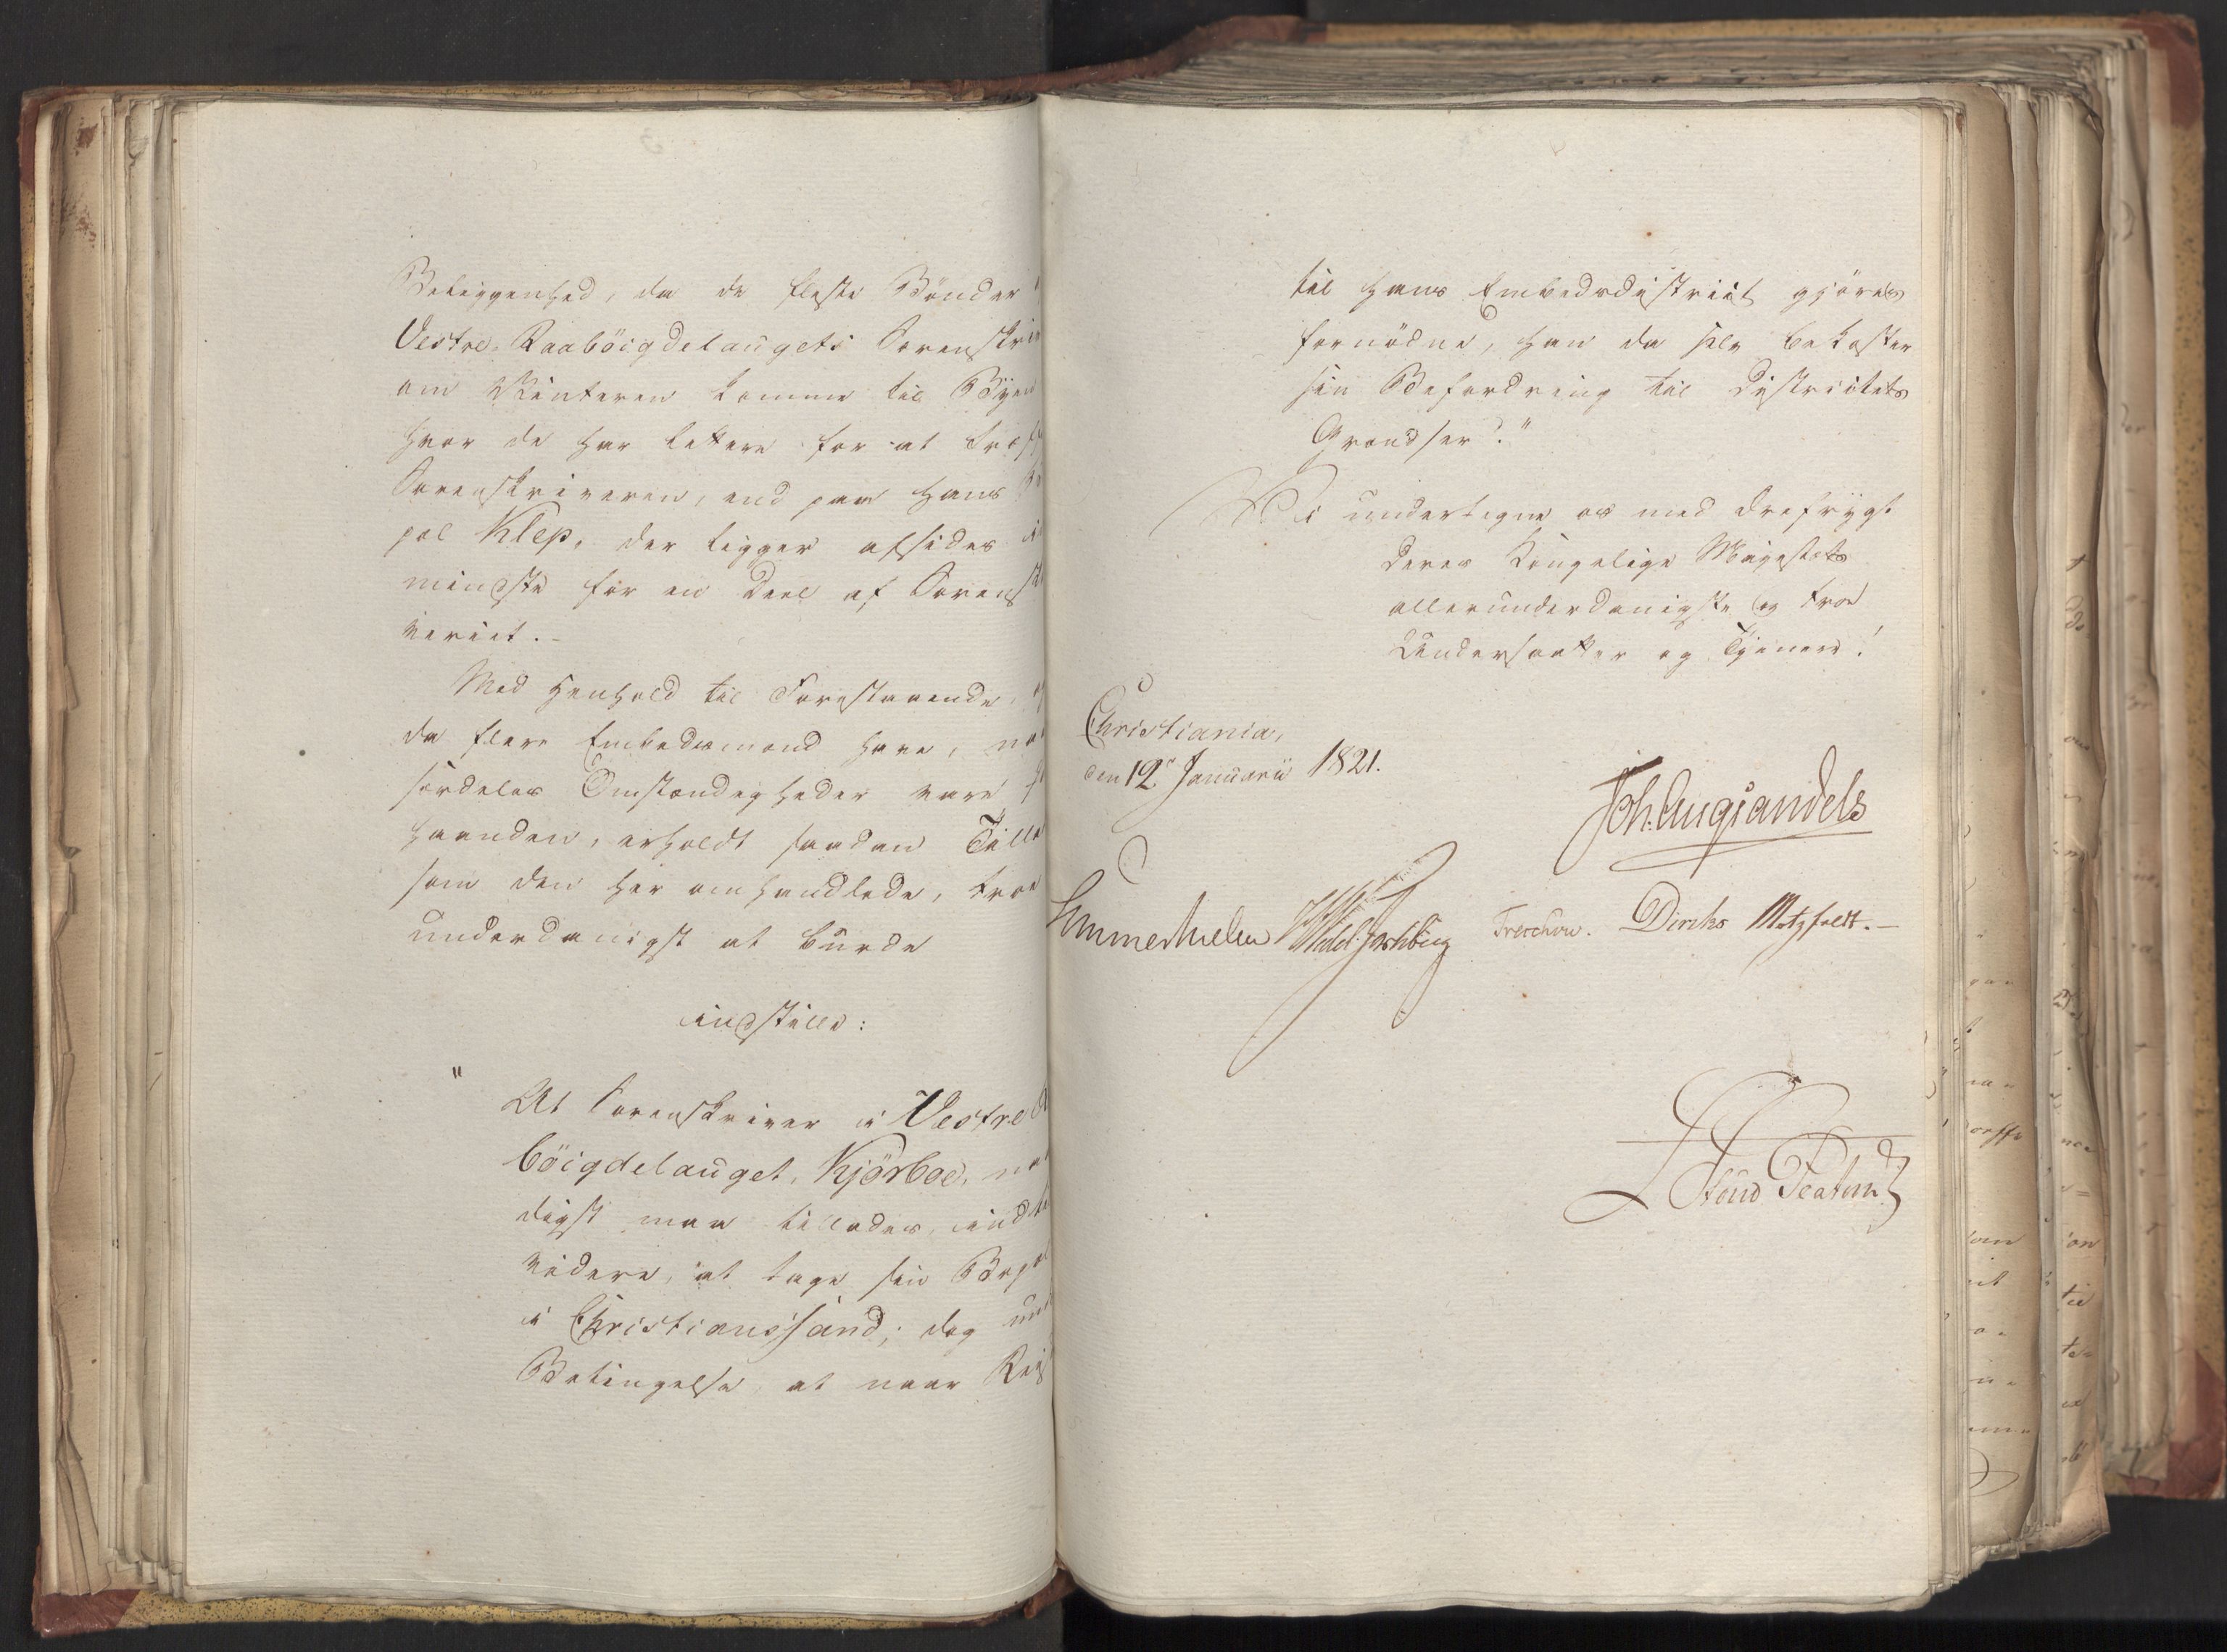 Beliggenhed, da de fleste Bönder
Vestre-Raaböigdelaugets Sorenskri
om Vinteren komme til Byen
hvor de har lettere for at træf
Sorenskriveren, end paa hans
pæl Klep, der ligger afsides
mindste for en Deel af Sorensk
veriet.-
Med Henhold til Forestaaende,
da flere Embedsmænd have, na
sördeles Omstændigheder vare
haanden, erholdt saadan Tilla
som den her omhandlede, troe
underdanigst at burde
indstille:
" At Sorenskriver i Vestre
böigdelauget, Kjörboe, na
digst maa tillades, indtil
videre, at tage sin Bopæl
i Christianssand; dog un
Betingelse, at naar Reis
til hans Embedsdistrict gjöres
fornödne, han da selv bekoster
sin Befordring til Districtets
Grændser."
Vi undertegne os med Ærefrygt
Deres Kongelige Majestæts
allerunderdanigste og troe
Undersaatter og Tjenere!
Christiania,
den 12te Januarii 1821.
Joh: Aug: Sandels
Sommerhielm Treschow. Diriks Motzfeldt.-